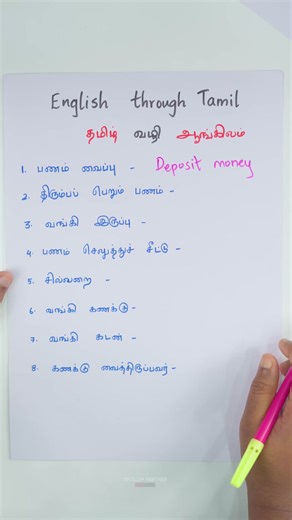 English through Tamil
தமிழ் வழி ஆங்கிலம்
1. பணம் வைப்பு - Deposit money
2. திரும்பப் பெறும் பணம் -
3. வங்கி இருப்பு -
4. பணம் செலுத்துச் சீட்டு -
5. சில்லறை -
6. வங்கி கணக்கு -
7. வங்கி கடன் -
8. கணக்கு வைத்திருப்பவர் -